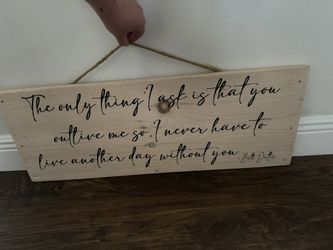 The only thing I ask is that you
outlive me so I never have to
live another day without you - Beth Dutton